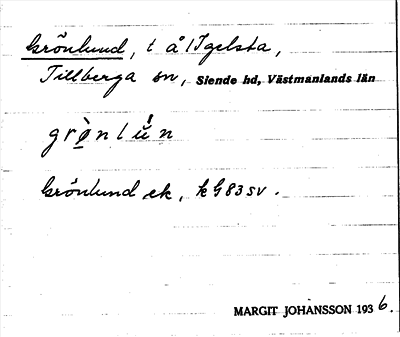 Grönlund, t å 1 Igelsta,
Tillberga sn, Siende hd, Västmanlands län
grø̀nlǘn
Grönlund ek, kG83SV.
MARGIT JOHANSSON 1936.